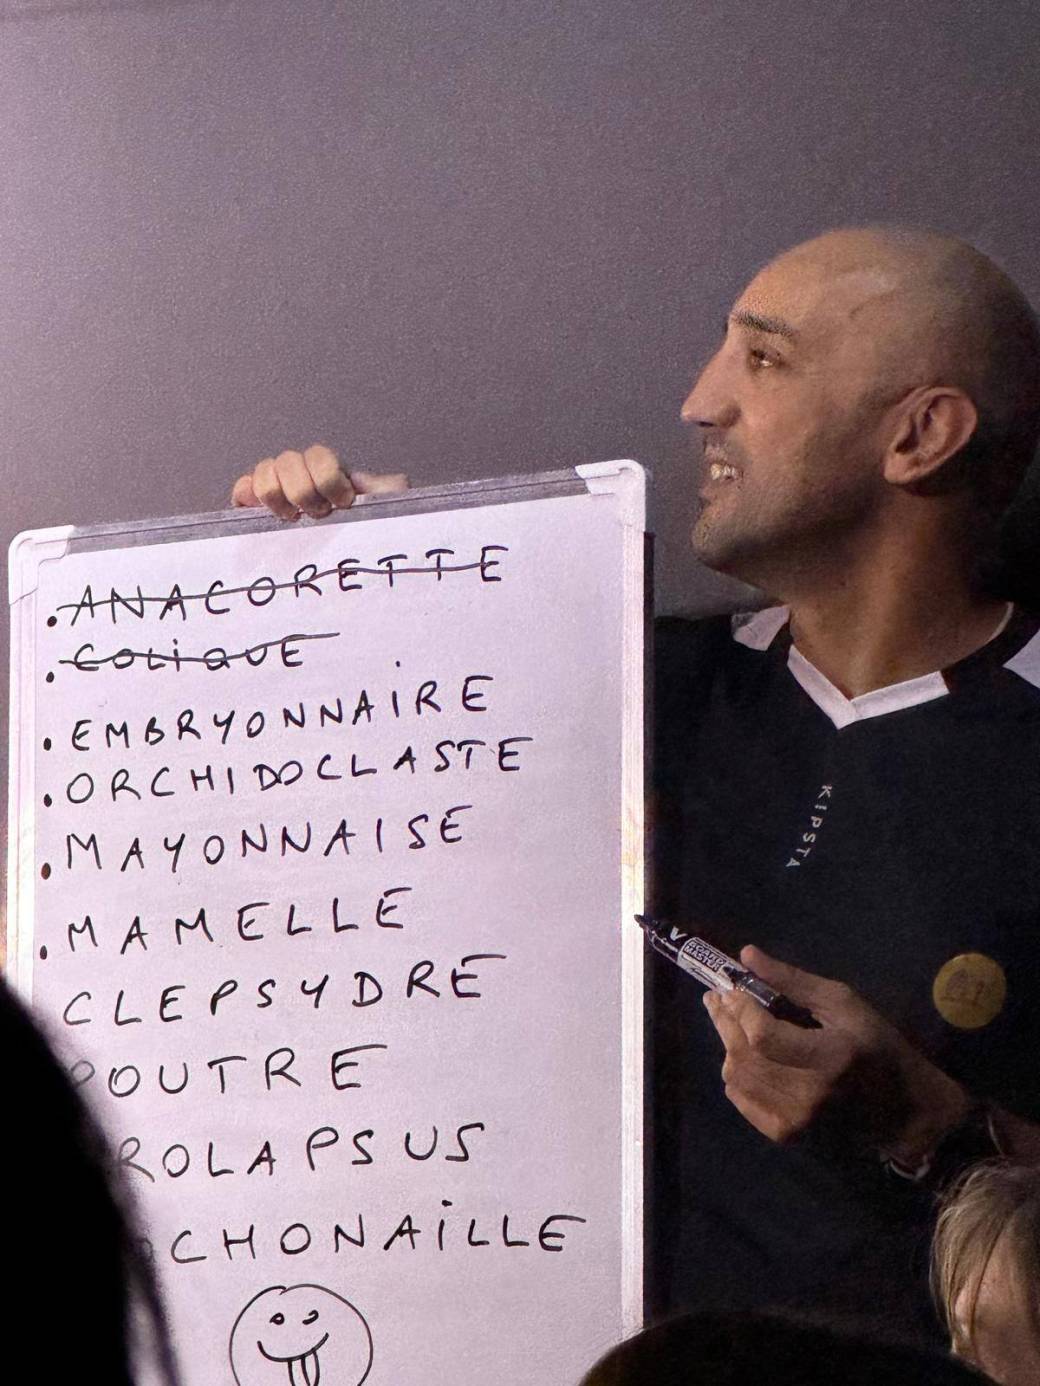 . ANACORETTE
. COLiQUE
. EMBRYONNAiRE
. ORCHIDOCLASTE
. MAYONNAISE
. MAMELLE
CLEPSYDRE
POUTRE
ROLAPSUS
OCHONAiLLE
KIPSTA